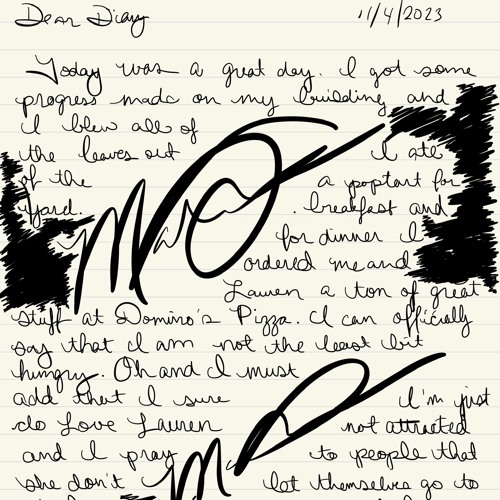 Dear Diary 11/4/2023
Today was a great day. I got some
progress made on my building and
I blew all of
the leaves out I ate
of the a poptart for
yard. . breakfast and
for dinner I
ordered me and
Lauren a ton of great
stuff at Domino's Pizza. I can officially
say that I am not the least bit
hungry. Oh and I must
add that I sure I'm just
do Love Lauren not attracted
and I pray to people that
she don't let themselves go to